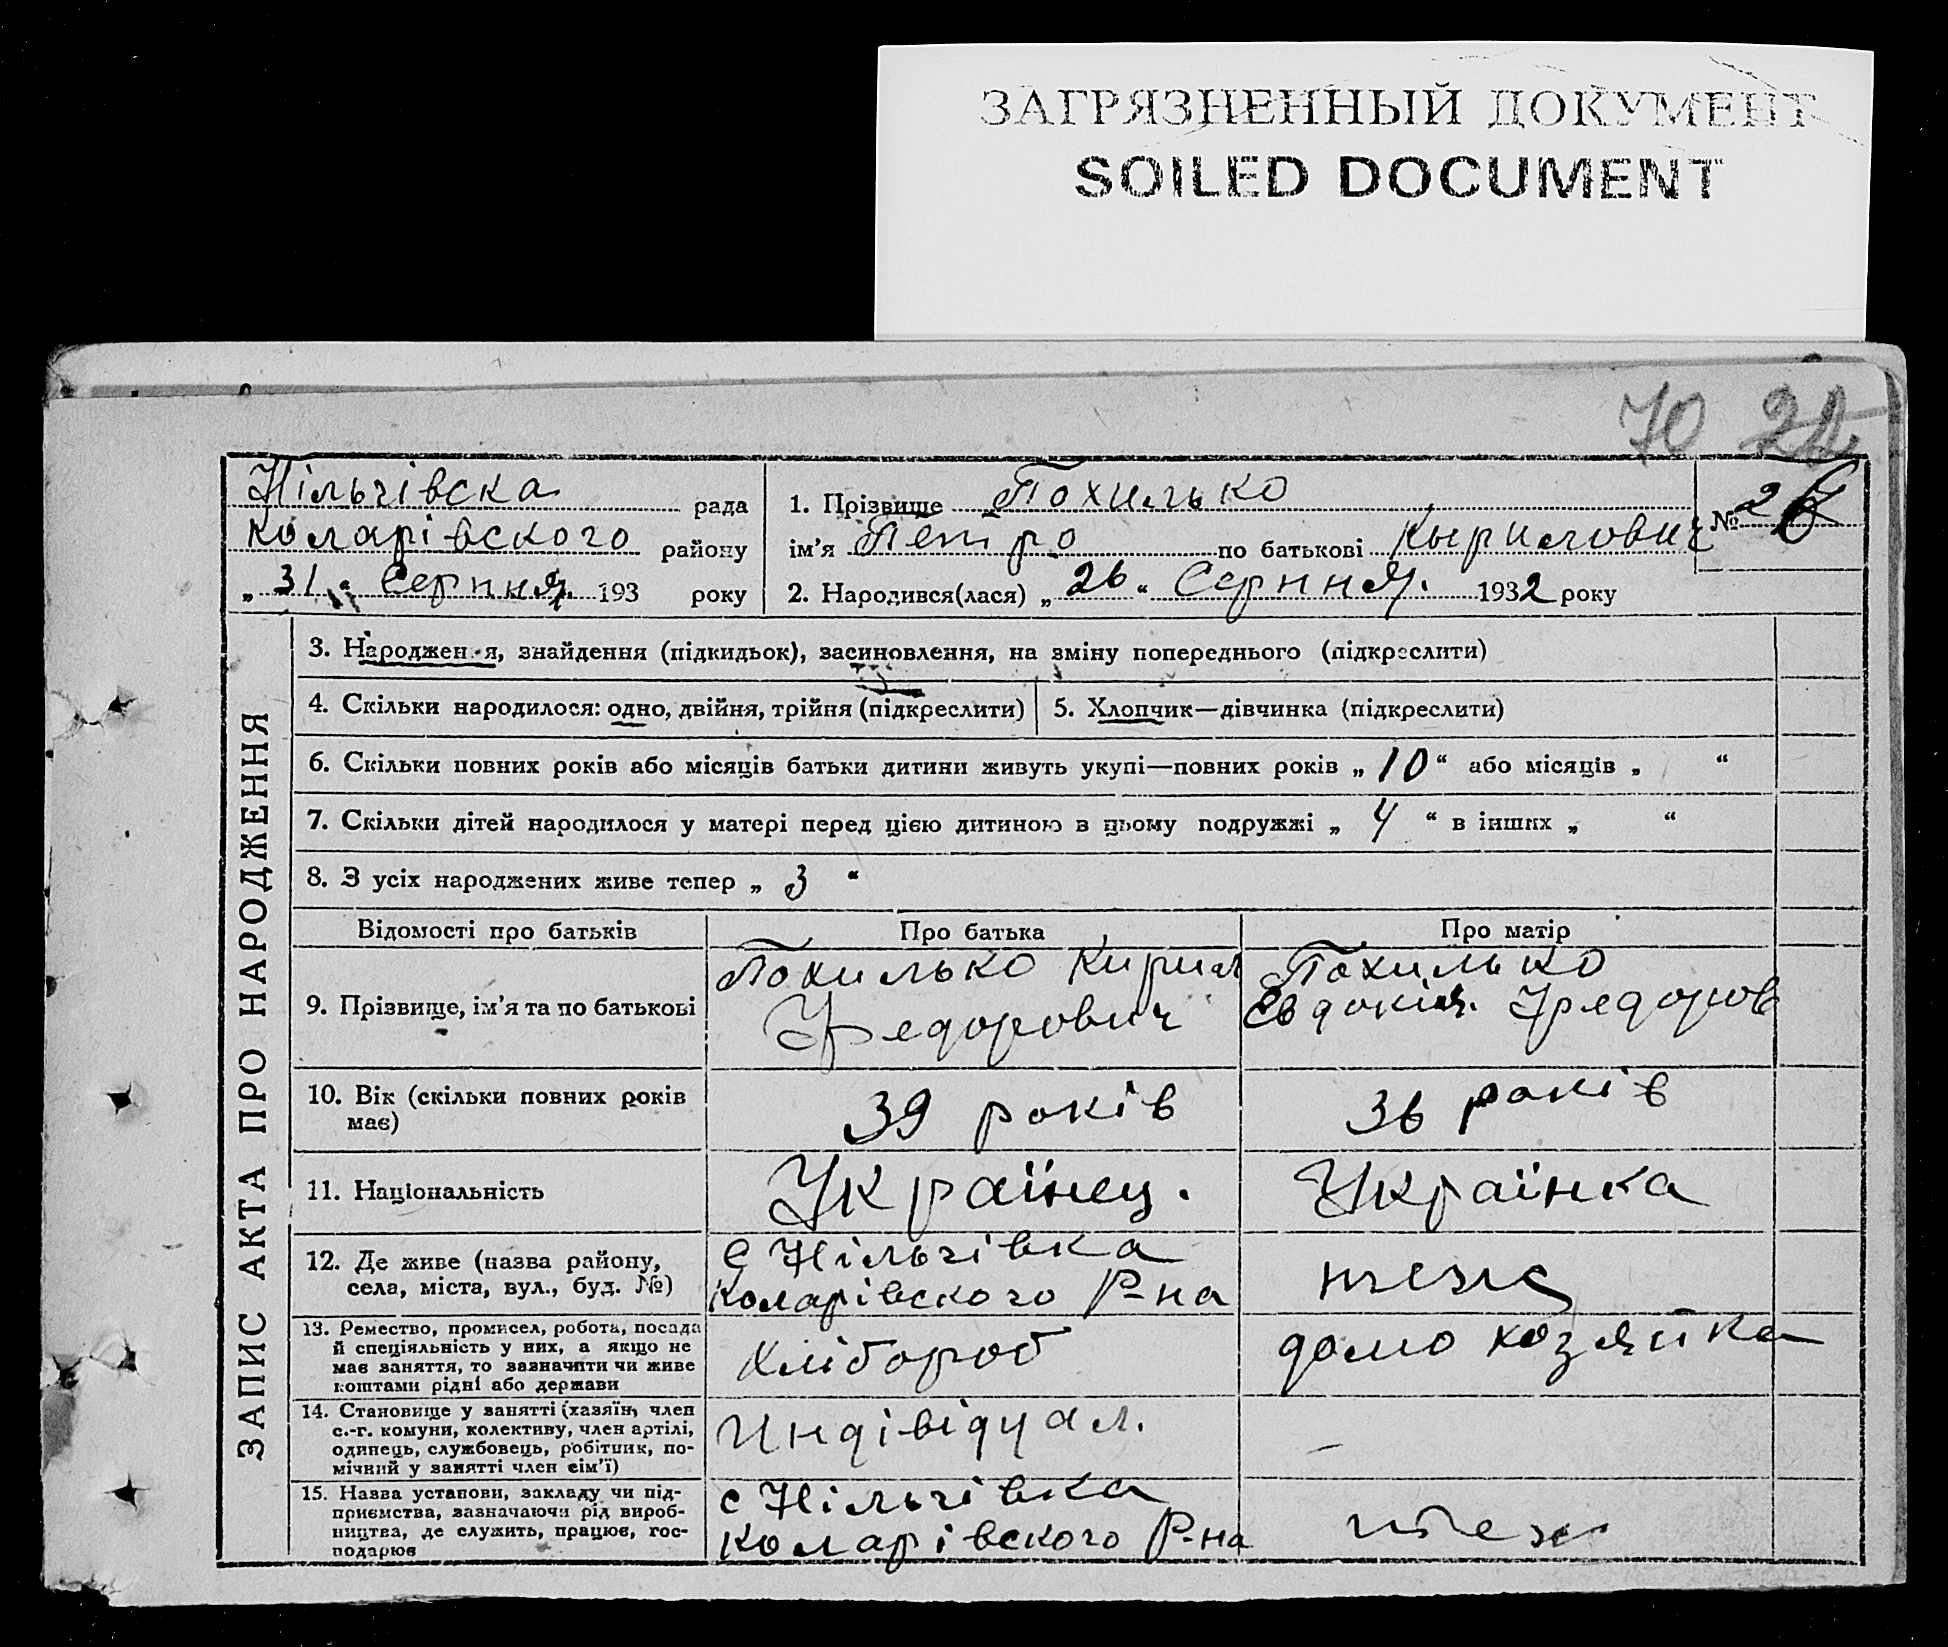 ЗАГРЯЗНЕННЫЙ ДОКУМЕНТ
SOILED DOCUMENT
70 22
ЗАПИС АКТА ПРО НАРОДЖЕННЯ
Нільгівска рада
коларівского району
„ 31 “ Серпня. 193 року
1. Прізвище Похилько
ім’я Петро по батькові Кырилович
№ 26
2. Народився(лася) „ 26 “ Серпня. 1932 року
3. Народження, знайдення (підкидьок), засиновлення, на зміну попереднього (підкреслити)
4. Скільки народилося: одно, двійня, трійня (підкреслити)
5. Хлопчик—дівчинка (підкреслити)
6. Скільки повних років або місяців батьки дитини живуть укупі—повних років „ 10 “ або місяців „ “
7. Скільки дітей народилося у матері перед цією дитиною в цьому подружжі „ 4 “ в інших „ “
8. З усіх народжених живе тепер „ 3 “
Відомості про батьків
Про батька
Про матір
9. Прізвище, ім’я та по батькові
Похилько Кирил
Фредорович
Похилько
Євдокія. Фредоров
10. Вік (скільки повних років
має)
39 років
36 років
11. Національність
Українец.
Українка
12. Де живе (назва району,
села, міста, вул., буд. №)
с Нільгівка
Коларівского Р-на
теж
13. Ремество, промисел, робота, посада
й спеціяльність у них, а якщо не
має заняття, то зазначити чи живе
коштами рідні або держави
хлібороб
домо хозяйка
14. Становище у занятті (хазяїн, член
с.-г. комуни, колективу, член артілі,
одинець, службовець, робітник, по-
мічний у занятті член сім’ї)
Индівідуал.
–
15. Назва установи, закладу чи під-
приємства, зазначаючи рід вироб-
ництва, де служить, працює, гос-
подарює
с Нільгівка
Коларівского Р-на
теж